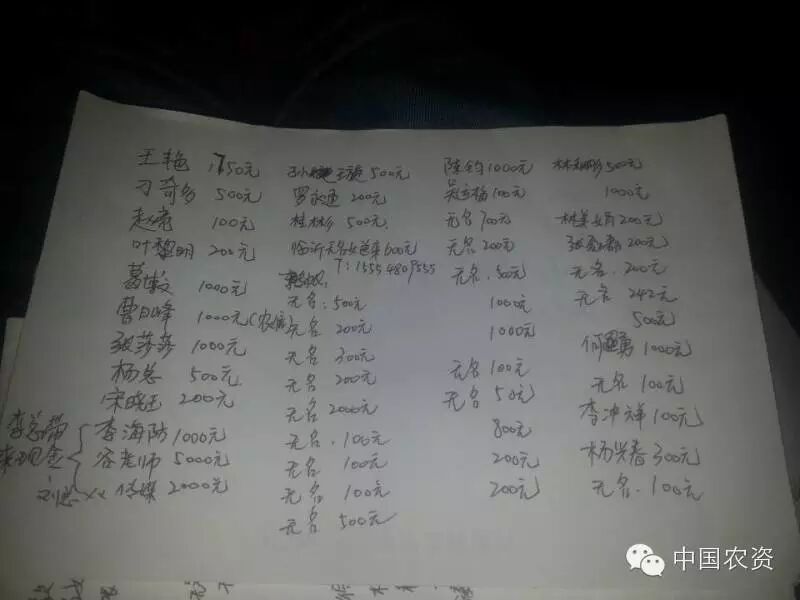 王艳 1750元
刁奇多 500元
赵 100元
叶黎明 200元
葛 1000元
曹 峰 1000元(农
张莎莎 1000元
杨总 500元
宋晓玉 200元
李总
现金
李海防 1000元
谷老师 5000元
传媒 2000元
孙 500元
罗永通 200元
桂彬彬 500元
临沂 600元
T: 15554809555
无名: 500元
无名 200元
无名 300元
无名 200元
无名 2000元
无名. 100元
无名 100元
无名. 100元
无名 500元
陈钧 1000元
100元
无名 700元
无名 200元
无名. 500元
1000元
1000元
无名 100元
无名 50元
800元
200元
200元
林 500元
1000元
200元
张 200元
无名. 200元
无名 242元
500元
何 勇 1000元
无名 100元
李冲祥 100元
杨兴春 300元
无名. 100元
中国农资